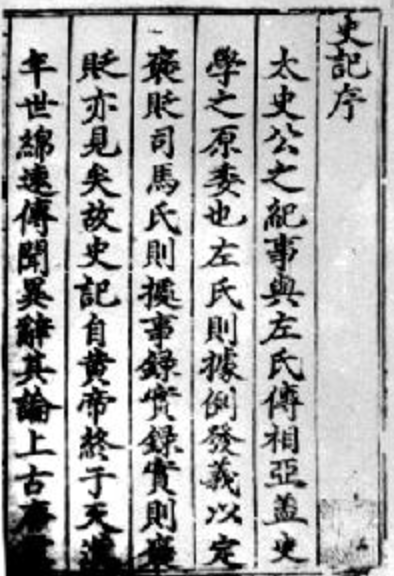 史記序
太史公之紀事與左氏傳相亞盖史
學之原委也左氏則據例發義以定
褒貶司馬氏則據事錄實錄實則褒
貶亦見矣故史記自黄帝終于天漢
年世綿遠傳聞異辭其論上古唐